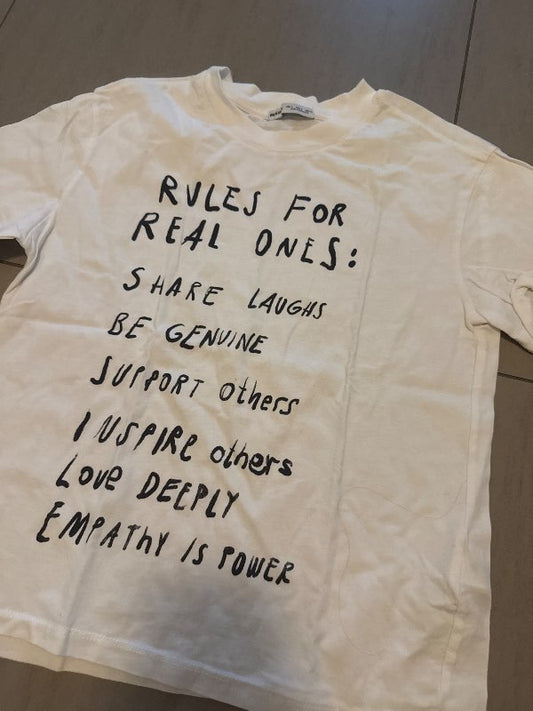 RULES FOR
REAL ONES:
SHARE LAUGHS
BE GENUINE
SUPPORT others
INSPIRE others
LOVE DEEPLY
EMPATHY IS POWER